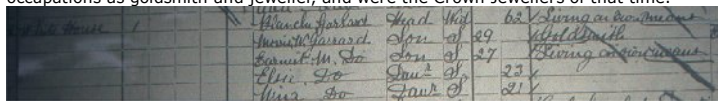 occupations as goldsmith and jeweller, and were the Crown Jewellers of that time.
House 1 Blanche Garrard Head Wid 62 Living on own means
Garrard Son S 29 Goldsmith
M. Do Son S 27 Living on own means
Elsie Do Daur S 23
Nina Do Daur S 21